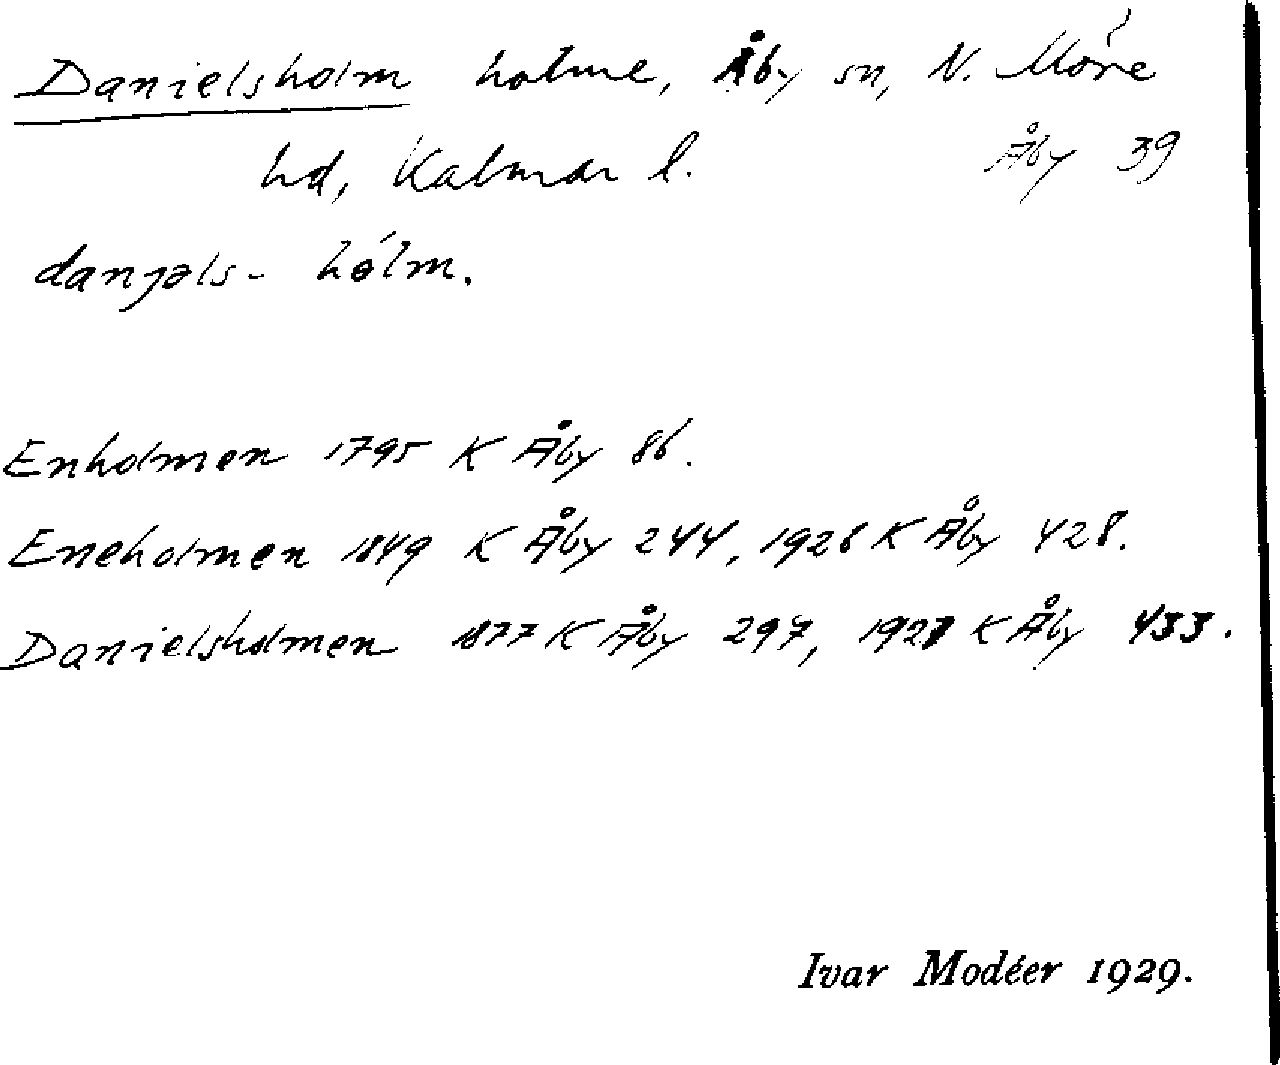 Danielsholm holme, Åby sn, N. Möre
hd, Kalmar l. Åby 39
danjəls- hólm.
Enholmen 1795 K Åby 86.
Eneholmen 1849 K Åby 244, 1926 K Åby 428.
Danielsholmen 1877 K Åby 297, 1927 K Åby 433.
Ivar Modéer 1929.